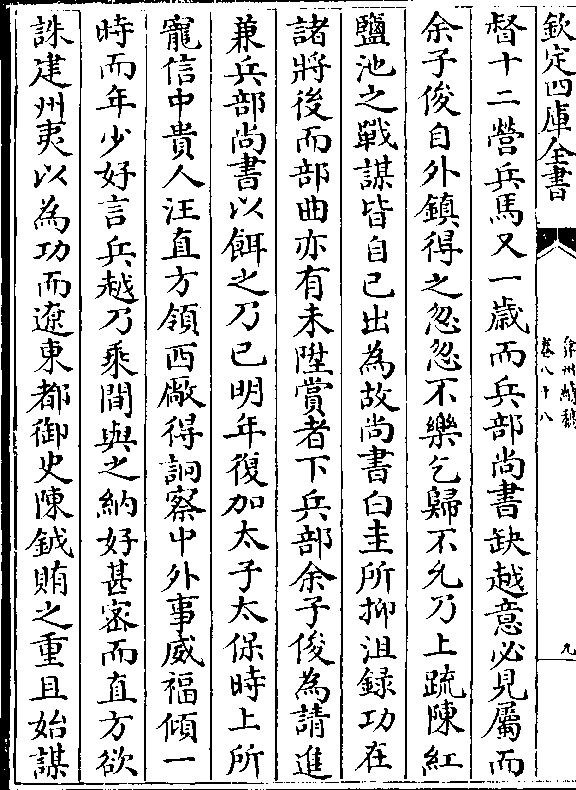 欽定四庫全書
弇州續稿
卷八十八
九
督十二營兵馬又一歲而兵部尚書缺越意必見屬而
余子俊自外鎮得之忽忽不樂乞歸不允乃上疏陳紅
鹽池之戰謀皆自己出為故尚書白圭所抑沮録功在
諸將後而部曲亦有未陞賞者下兵部余子俊為請進
兼兵部尚書以餌之乃已明年復加太子太保時上所
寵信中貴人汪直方領西厰得詗察中外事威福傾一
時而年少好言兵越乃乘間與之納好甚密而直方欲
誅建州夷以為功而遼東都御史陳鉞賄之重且始謀